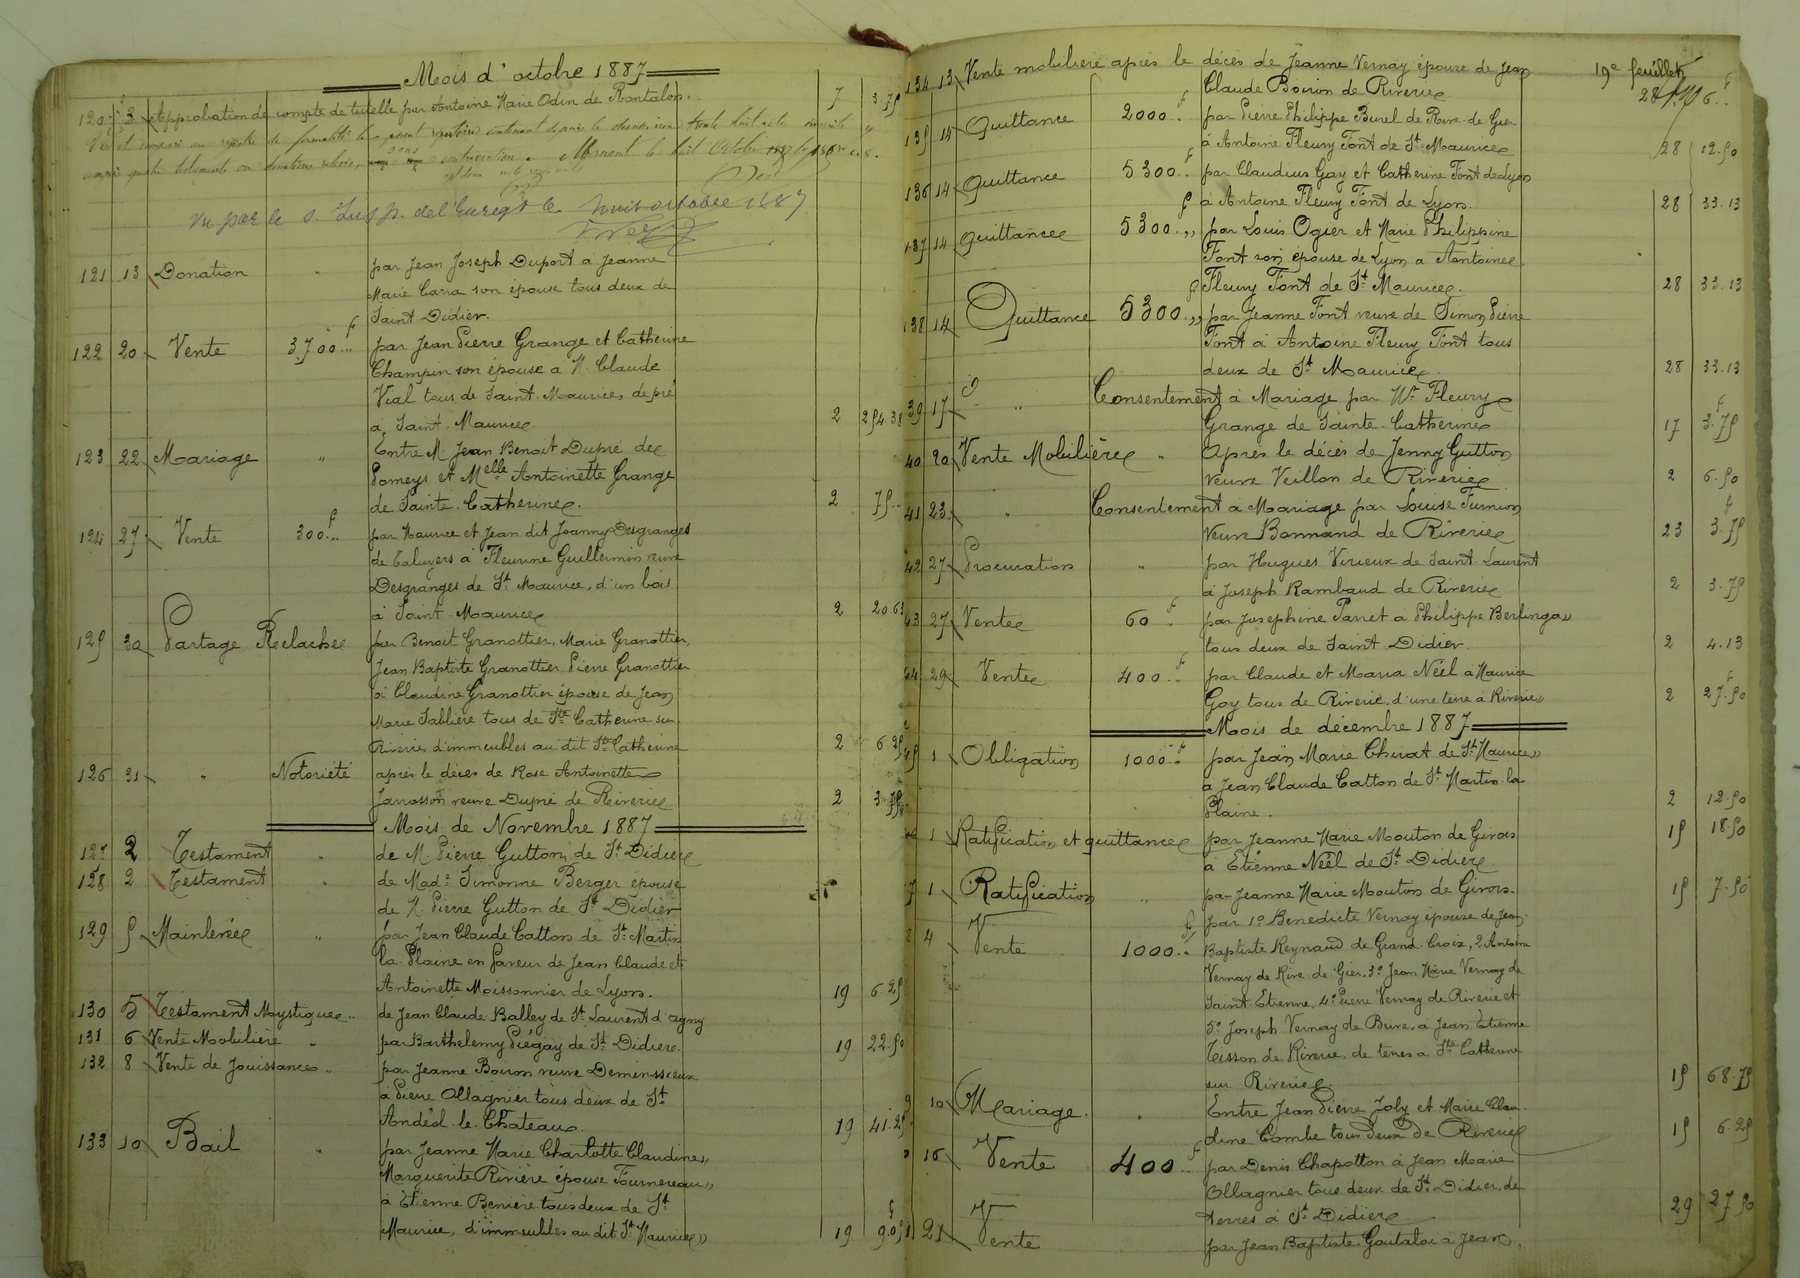 Mois d'octobre 1887
120 3 Approbation de compte de tutelle par Antoine Marie Odin de Rontalon. 7 3.75
Mornant le huit Octobre
Vu par le s. Insp. de l'Enregt le huit octobre 1887
121 13 Donation " par Jean Joseph Duport à Jeanne
Marie Carra son épouse tous deux de
Saint Didier.
122 20 Vente 3,700 f par Jean Pierre Grange et Catherine
Champin son épouse à M. Claude
Vial tous de Saint Maurice, de pré
à Saint Maurice 2 254.38
123 22 Mariage " Entre M. Jean Benoit Dupré de
Pomeys et Melle Antoinette Grange
de Sainte Catherine. 2 75
124 27 Vente 300 f par Maurice et Jean dit Joanny Desgranges
de Taluyers à Fleurine Guillermin veuve
Desgranges de St Maurice, d'un bois
à Saint Maurice 2 20.63
125 30 Partage Relaché par Benoit Granottier, Marie Granottier,
Jean Baptiste Granottier, Pierre Granottier
à Claudine Granottier épouse de Jean
Marie Sablière tous de Ste Catherine sur
Riverie, d'immeubles au dit Ste Catherine 2 6.25
126 31 " Notoriété après le décès de Rose Antoinette
Jarrosson veuve Dupré de Riverie 2 3.75
Mois de Novembre 1887
127 2 Testament " de M. Pierre Gutton, de St Didier
128 2 Testament " de Made Simonne Berger épouse
de M. Pierre Gutton de St Didier
129 5 Mainlevée " par Jean Claude Catton de St Martin
la Plaine en faveur de Jean Claude et
Antoinette Moissonnier de Lyon. 19 6.25
130 5 Testament Mystique de Jean Claude Balley de St Laurent d'Agny
131 6 Vente Mobilière " par Barthelemy Piégay de St Didier. 19 22.50
132 8 Vente de Jouissances par Jeanne Boiron veuve
à Pierre Ollagnier tous deux de St
Andéol-le-Chateau. 19 41.25
133 10 Bail " par Jeanne Marie Charlotte Claudine
Marguerite Rivière épouse Fournereau
à Etienne Benière tous deux de St
Maurice, d'immeubles au dit St Maurice 19 9.05
19e feuillet
134 13 Vente mobilière après le décès de Jeanne Vernay épouse de Jean
Claude Boiron de Riverie 28
135 14 Quittance 2000 f par Pierre Philippe Burel de Rive-de-Gier
à Antoine Fleury Font de St Maurice 28 12.50
136 14 Quittance 5300 f par Claudius Gay et Catherine Font de Lyon
à Antoine Fleury Font de Lyon. 28 33.13
137 14 Quittance 5300 f par Louis Ogier et Marie Philippine
Font son épouse de Lyon à Antoine
Fleury Font de St Maurice. 28 33.13
138 14 Quittance 5300 f par Jeanne Font veuve de Simon Pierre
Font à Antoine Fleury Font tous
deux de St Maurice 28 33.13
39 17 " Consentement à Mariage par Mr Fleury
Grange de Sainte Catherine 17 3.75
40 20 Vente Mobilière " Après le décès de Jenny Gutton
veuve Veillon de Riverie 2 6.50
41 23 " Consentement à Mariage par Louise Furnion
veuve Bonnand de Riverie 23 3.75
42 27 Procuration " par Hugues Virieux de Saint Laurent
à Joseph Rambaud de Riverie 2 3.75
43 27 Vente 60 f par Josephine Parret à Philippe Berlinga
tous deux de Saint Didier 2 4.13
44 29 Vente 400 f par Claude et Maria Néel à Maurice
Goy tous de Riverie, d'une terre à Riverie 2 27.50
Mois de décembre 1887
45 1 Obligation 1000 f par Jean Marie Chirat de St Maurice
à Jean Claude Catton de St Martin la
Plaine. 2 12.50
46 1 Ratification et quittance par Jeanne Marie Mouton de Givors
à Etienne Néel de St Didier 15 18.50
7 1 Ratification " par Jeanne Marie Mouton de Givors. 15 7.50
8 4 Vente 1000 f par 1o Benedicte Vernay épouse de Jean
Baptiste Reynaud de Grand Croix, 2o Antoine
Vernay de Rive de Gier, 3o Jean Marie Vernay de
Saint Etienne, 4o Pierre Vernay de Riverie et
5o Joseph Vernay de Bure, à Jean Etienne
Tisson de Riverie, de terres à Ste Catherine
sur Riverie. 15 68.75
9 10 Mariage. " Entre Jean Pierre Joly et Marie Clau-
dine Combe tous deux de Riverie 15 6.25
16 Vente 400 f par Denis Chapotton à Jean Marie
Ollagnier tous deux de St Didier, de
terres à St Didier 29 27.50
21 Vente par Jean Baptiste à Jean